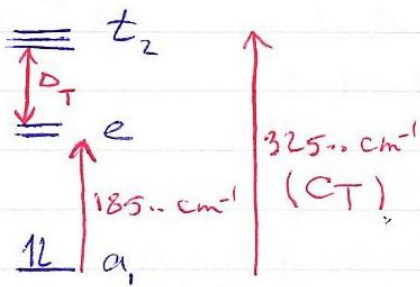 t₂
D_T
e
325.. cm⁻¹
(CT)
185.. cm⁻¹
1L a₁